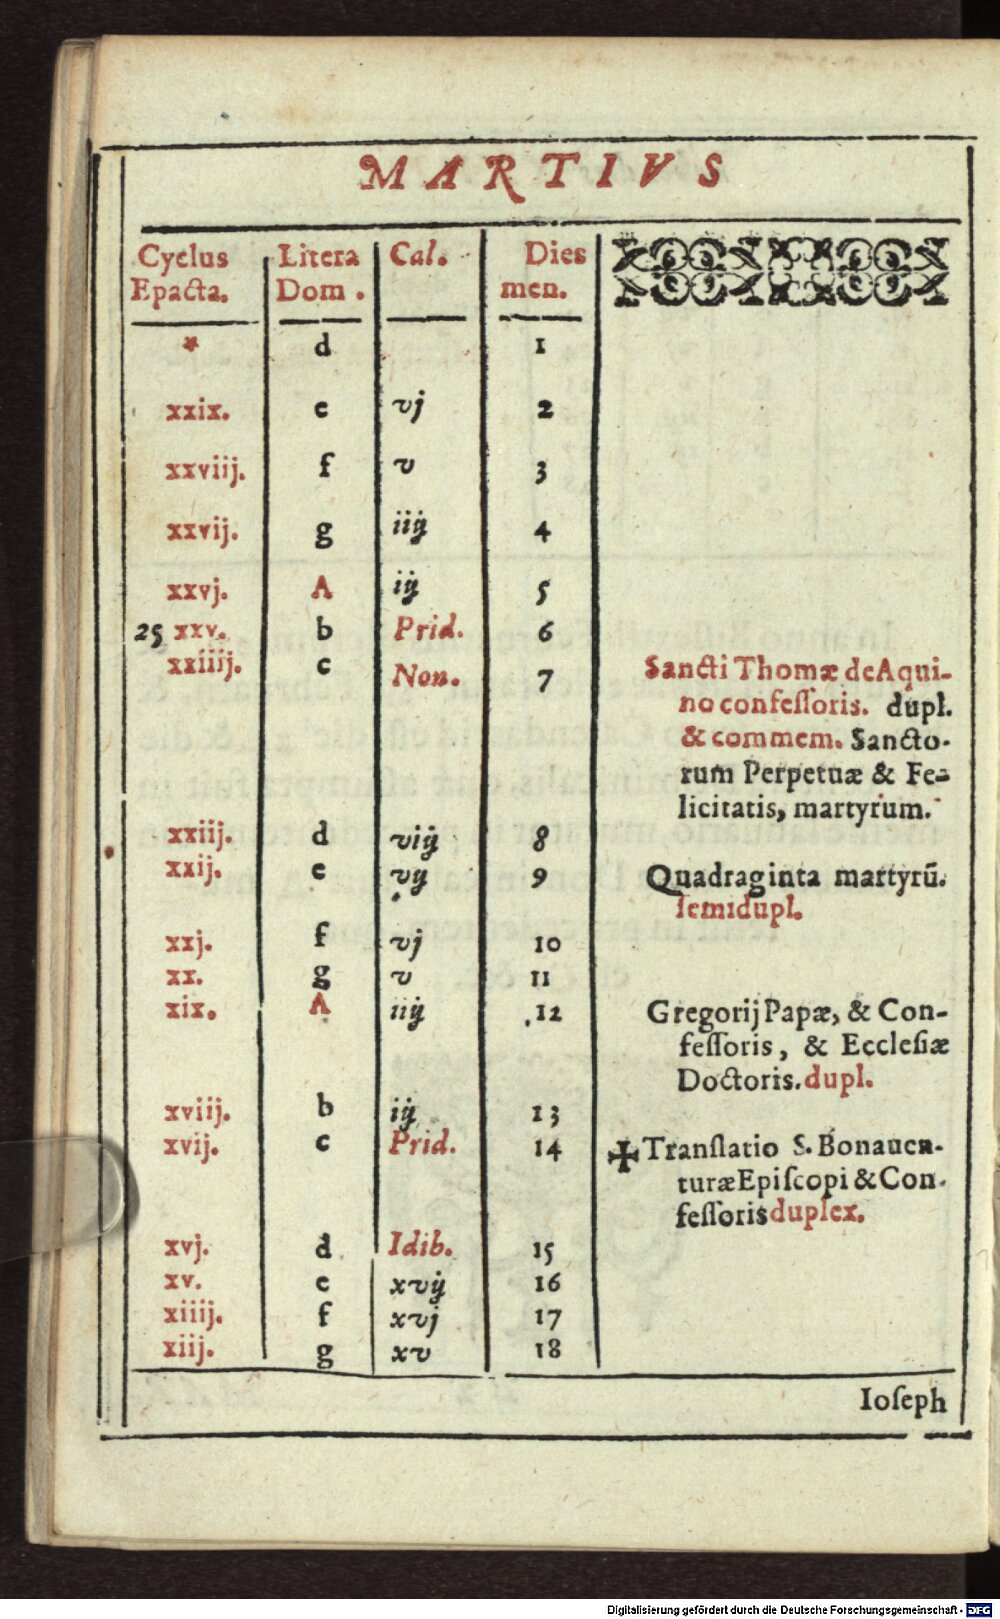 MARTIVS
Cyclus Litera Cal. Dies
Epacta. Dom. men.
* d 1
xxix. e vj 2
xxviij. f v 3
xxvij. g iiij 4
xxvj. A iij 5
25 xxv. b Prid. 6
xxiiij. c Non. 7 Sancti Thomæ de Aqui-
no confeſſoris. dupl.
& commem. Sancto-
rum Perpetuæ & Fe-
licitatis, martyrium.
xxiij. d viij 8
xxij. e vij 9 Quadraginta martyrū.
ſemidupl.
xxj. f vj 10
xx. g v 11
xix. A iiij 12 Gregorij Papæ, & Con-
feſſoris, & Eccleſiæ
Doctoris. dupl.
xviij. b iij 13
xvij. c Prid. 14 ✠ Tranſlatio S. Bonauen-
turæ Epiſcopi & Con-
feſſoris duplex.
xvj. d Idib. 15
xv. e xvij 16
xiiij. f xvj 17
xiij. g xv 18
Ioſeph
Digitalisierung gefördert durch die Deutsche Forschungsgemeinschaft - DFG